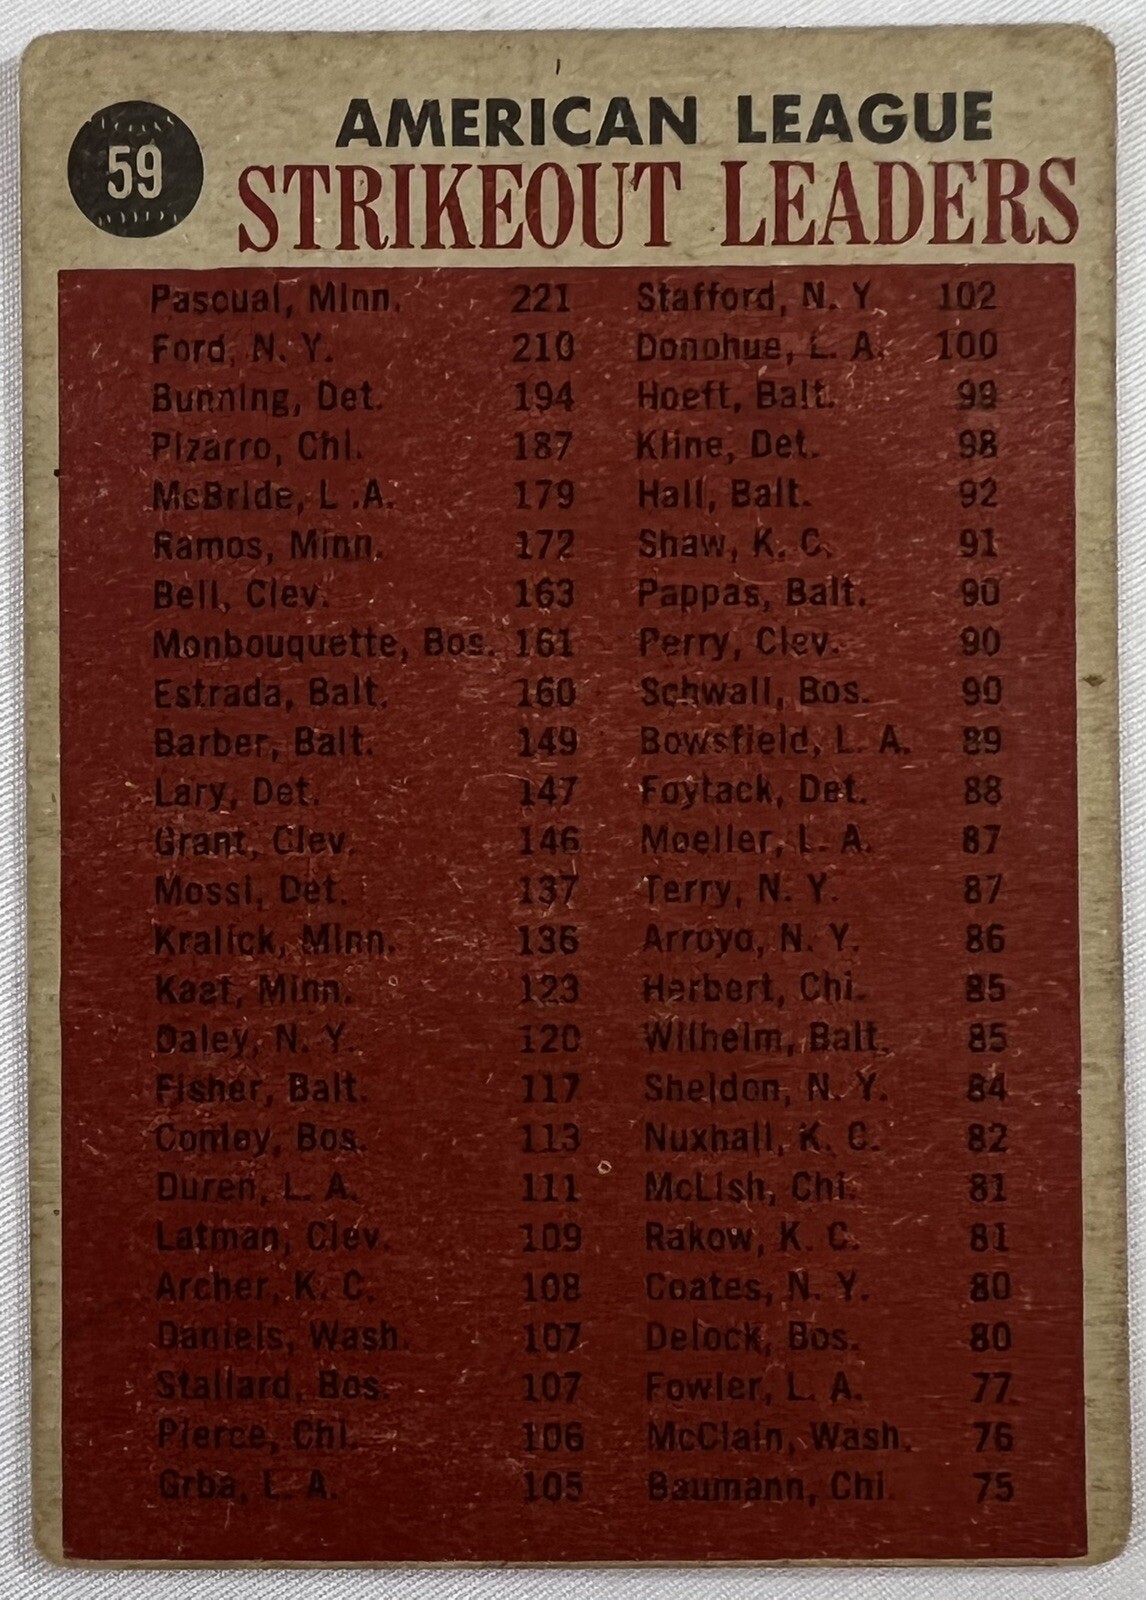 59
AMERICAN LEAGUE
STRIKEOUT LEADERS
Pascual, Minn. 221
Ford, N. Y. 210
Bunning, Det. 194
Pizarro, Chi. 187
McBride, L .A. 179
Ramos, Minn. 172
Bell, Clev. 163
Monbouquette, Bos. 161
Estrada, Balt. 160
Barber, Balt. 149
Lary, Det. 147
Grant, Clev. 146
Mossi, Det. 137
Kralick, Minn. 136
Kaat, Minn. 123
Daley, N. Y. 120
Fisher, Balt. 117
Conley, Bos. 113
Duren, L. A. 111
Latman, Clev. 109
Archer, K. C. 108
Daniels, Wash. 107
Stallard, Bos. 107
Pierce, Chi. 106
Grba, L. A. 105
Stafford, N. Y. 102
Donohue, L. A. 100
Hoeft, Balt. 99
Kline, Det. 98
Hall, Balt. 92
Shaw, K. C. 91
Pappas, Balt. 90
Perry, Clev. 90
Schwall, Bos. 90
Bowsfield, L. A. 89
Foytack, Det. 88
Moeller, L. A. 87
Terry, N. Y. 87
Arroyo, N. Y. 86
Herbert, Chi. 85
Wilhelm, Balt. 85
Sheldon, N. Y. 84
Nuxhall, K. C. 82
McLish, Chi. 81
Rakow, K. C. 81
Coates, N. Y. 80
Delock, Bos. 80
Fowler, L. A. 77
McClain, Wash. 76
Baumann, Chi. 75